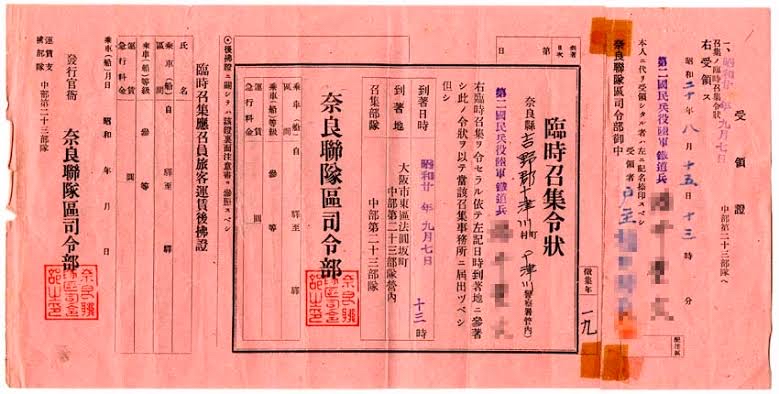 受領證
中部第二十三部隊ヘ
一、昭和廿年九月七日
召集ノ臨時召集令狀
右受領ス
昭和二十年八月十五日十三時 分
第二國民兵役陸軍鐵道兵
本人ニ代リ受領シタル者ハ左ニ記名捺印スベシ
受領者 戶主
奈良聯隊區司令部御中
配達區
徵集年 一九
臨時召集令狀
奈良縣吉野郡十津川村町
十津川警察署管內
第二國民兵役陸軍鐵道兵
右臨時召集ヲ令セラル依テ左記日時到著地ニ參著
シ此ノ令狀ヲ以テ當該召集事務所ニ屆出ヅベシ
但シ
到著日時 昭和廿年九月七日 十三時
到著地 大阪市東區法圓坂町
中部第二十三部隊營內
召集部隊 中部第二十三部隊
奈良聯隊區司令部
乘車(船)自 驛至 驛
區間
乘車(船)等級 參等
運賃 圓
急行料金
參著日次
第
日
後拂證ニ關シテハ該證裏面注意書ヲ參照スベシ
臨時召集應召員旅客運賃後拂證
氏名
乘車(船)自 驛至 驛
區間
乘車(船)等級 參等
運賃 圓
急行料金
乘車(船)月日 昭和 年 月 日
發行官衙 奈良聯隊區司令部
運賃支拂部隊 中部第二十三部隊